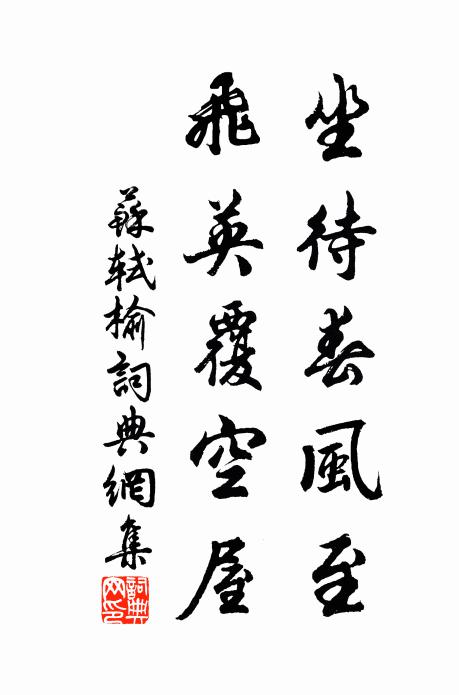 坐待春風至
飛英覆空屋
蘇軾榆詞典網集
詞典網印